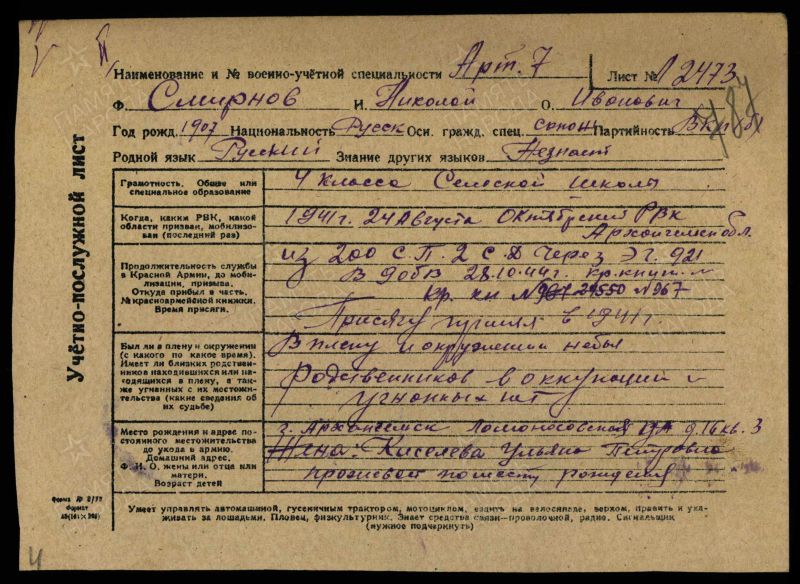 Учётно-послужной лист
Наименование и № военно-учётной специальности Арт. 7 Лист № 12473
Ф. Смирнов И. Николай О. Иванович
487
Год рожд. 1907 Национальность Русск Осн. гражд. спец. сапож Партийность ВКП(б)
Родной язык Русский Знание других языков Незнает
Грамотность. Общее или специальное образование
4 класса Сельской школы
Когда, каким РВК, какой области призван, мобилизован (последний раз)
1941 г. 24 Августа Октябрский РВК
Архангельск обл.
Продолжительность службы в Красной Армии, до мобилизации, призыва. Откуда прибыл в часть. № красноармейской книжки. Время присяги.
из 200 С.П. 2 С.Д через Э.Г. 921
В 28.10.44 г.
Кр. кн № 29550 № 967
Присягу принял в 1941 г.
Был ли в плену и окружении (с какого по какое время). Имеет ли близких родственников находившихся или находящихся в плену, а также угнанных с их местожительства (какие сведения об их судьбе)
В плену и окружении небыл
Родственников в оккупации и
угнонных нет
Место рождения и адрес постоянного местожительства до ухода в армию. Домашний адрес. Ф. И. О. жены или отца или матери. Возраст детей
г. Архангельск Ломоносовская д. 916 кв. 3
Жена: Киселева Ульяна Петровна
прожевает по месту рождения
Форма № 2/УП
Формат
Умеет управлять автомашиной, гусеничным трактором, мотоциклом, ездить на велосипеде, верхом, править и ухаживать за лошадьми. Пловец, физкультурник. Знает средства связи—проволочной, радио. Сигнальщик
(нужное подчеркнуть)
4